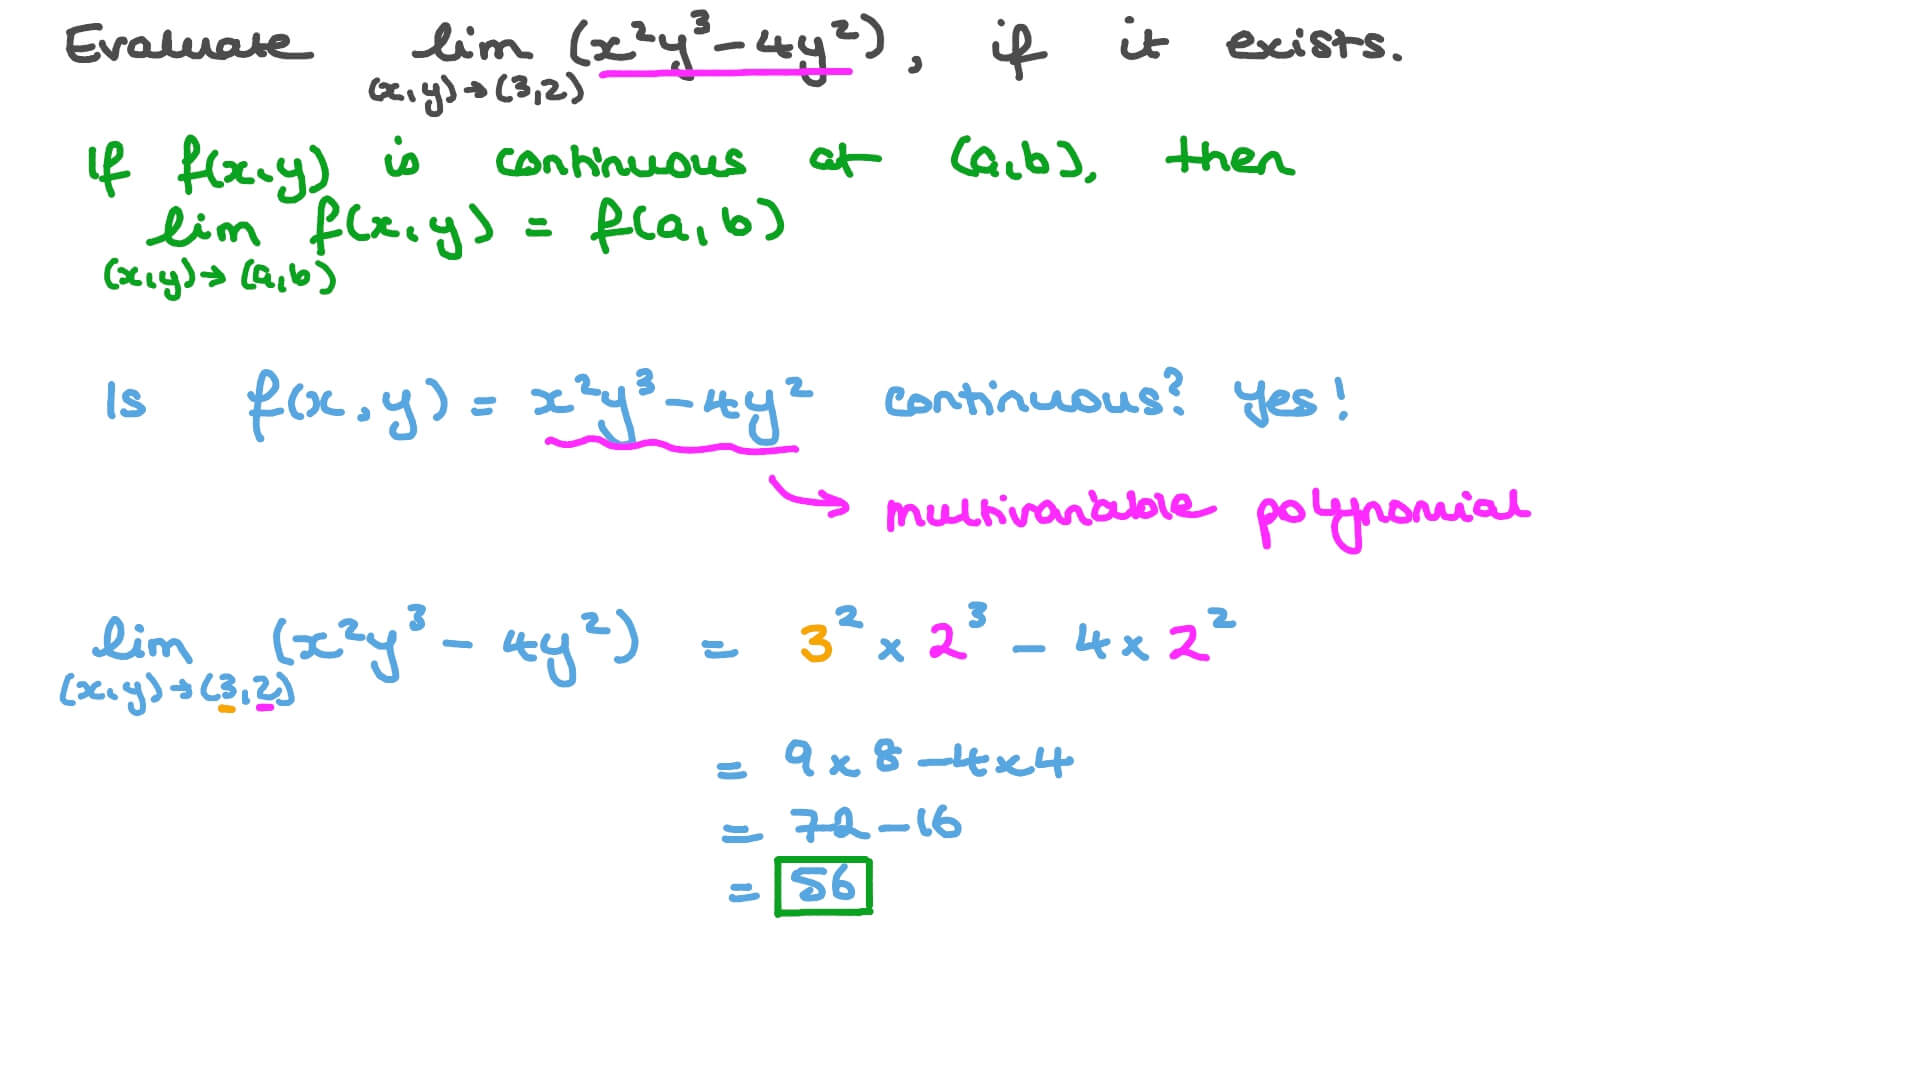 Evaluate lim (x²y³ - 4y²), if it exists.
(x,y)→(3,2)
If f(x,y) is continuous at (a,b), then
lim f(x,y) = f(a,b)
(x,y)→(a,b)
Is f(x,y) = x²y³ - 4y² continuous? Yes!
multivariable polynomial
lim (x²y³ - 4y²) = 3² × 2³ - 4 × 2²
(x,y)→(3,2)
= 9 × 8 - 4 × 4
= 72 - 16
= 56